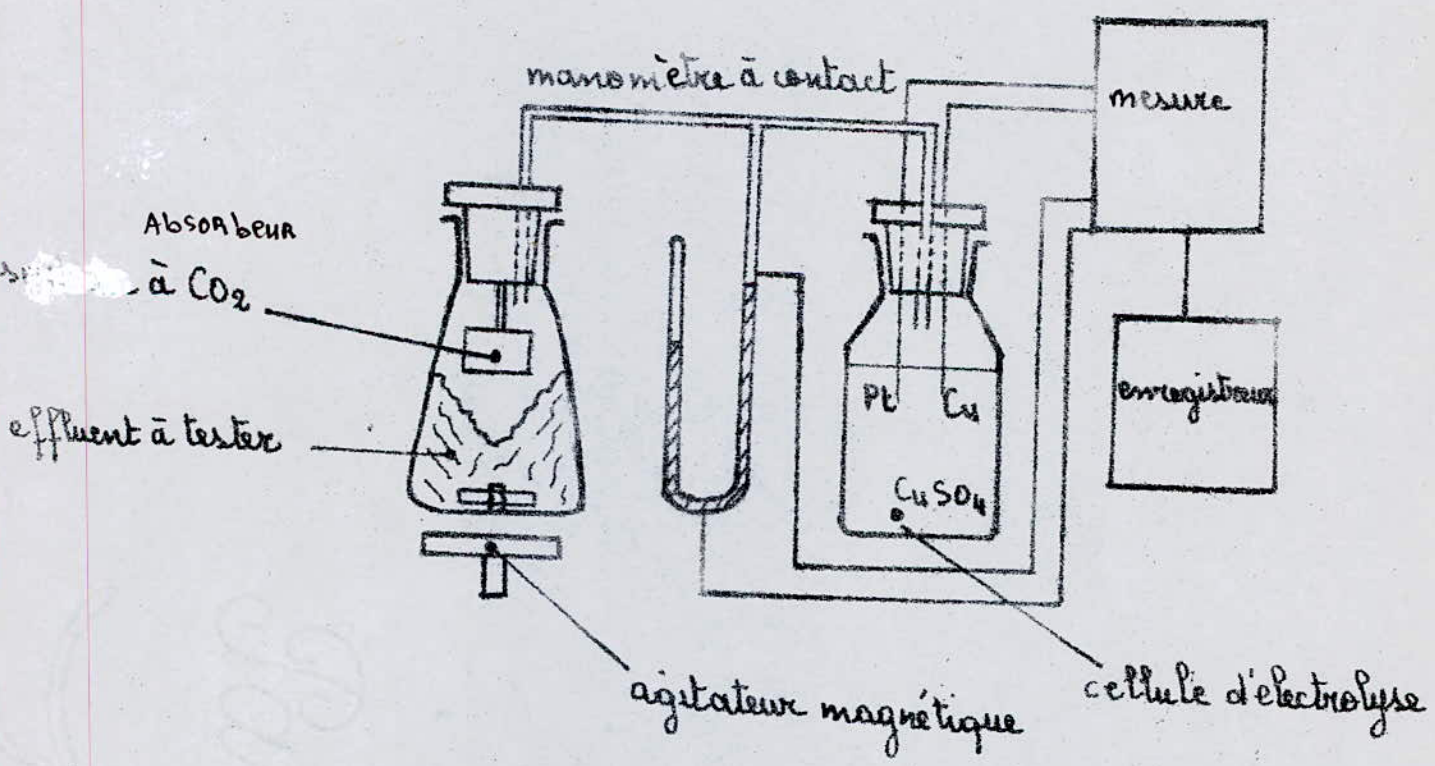 manomètre à contact
mesure
Absorbeur
à CO2
effluent à tester
Pt
Cu
CuSO4
enregistreur
agitateur magnétique
cellule d'électrolyse